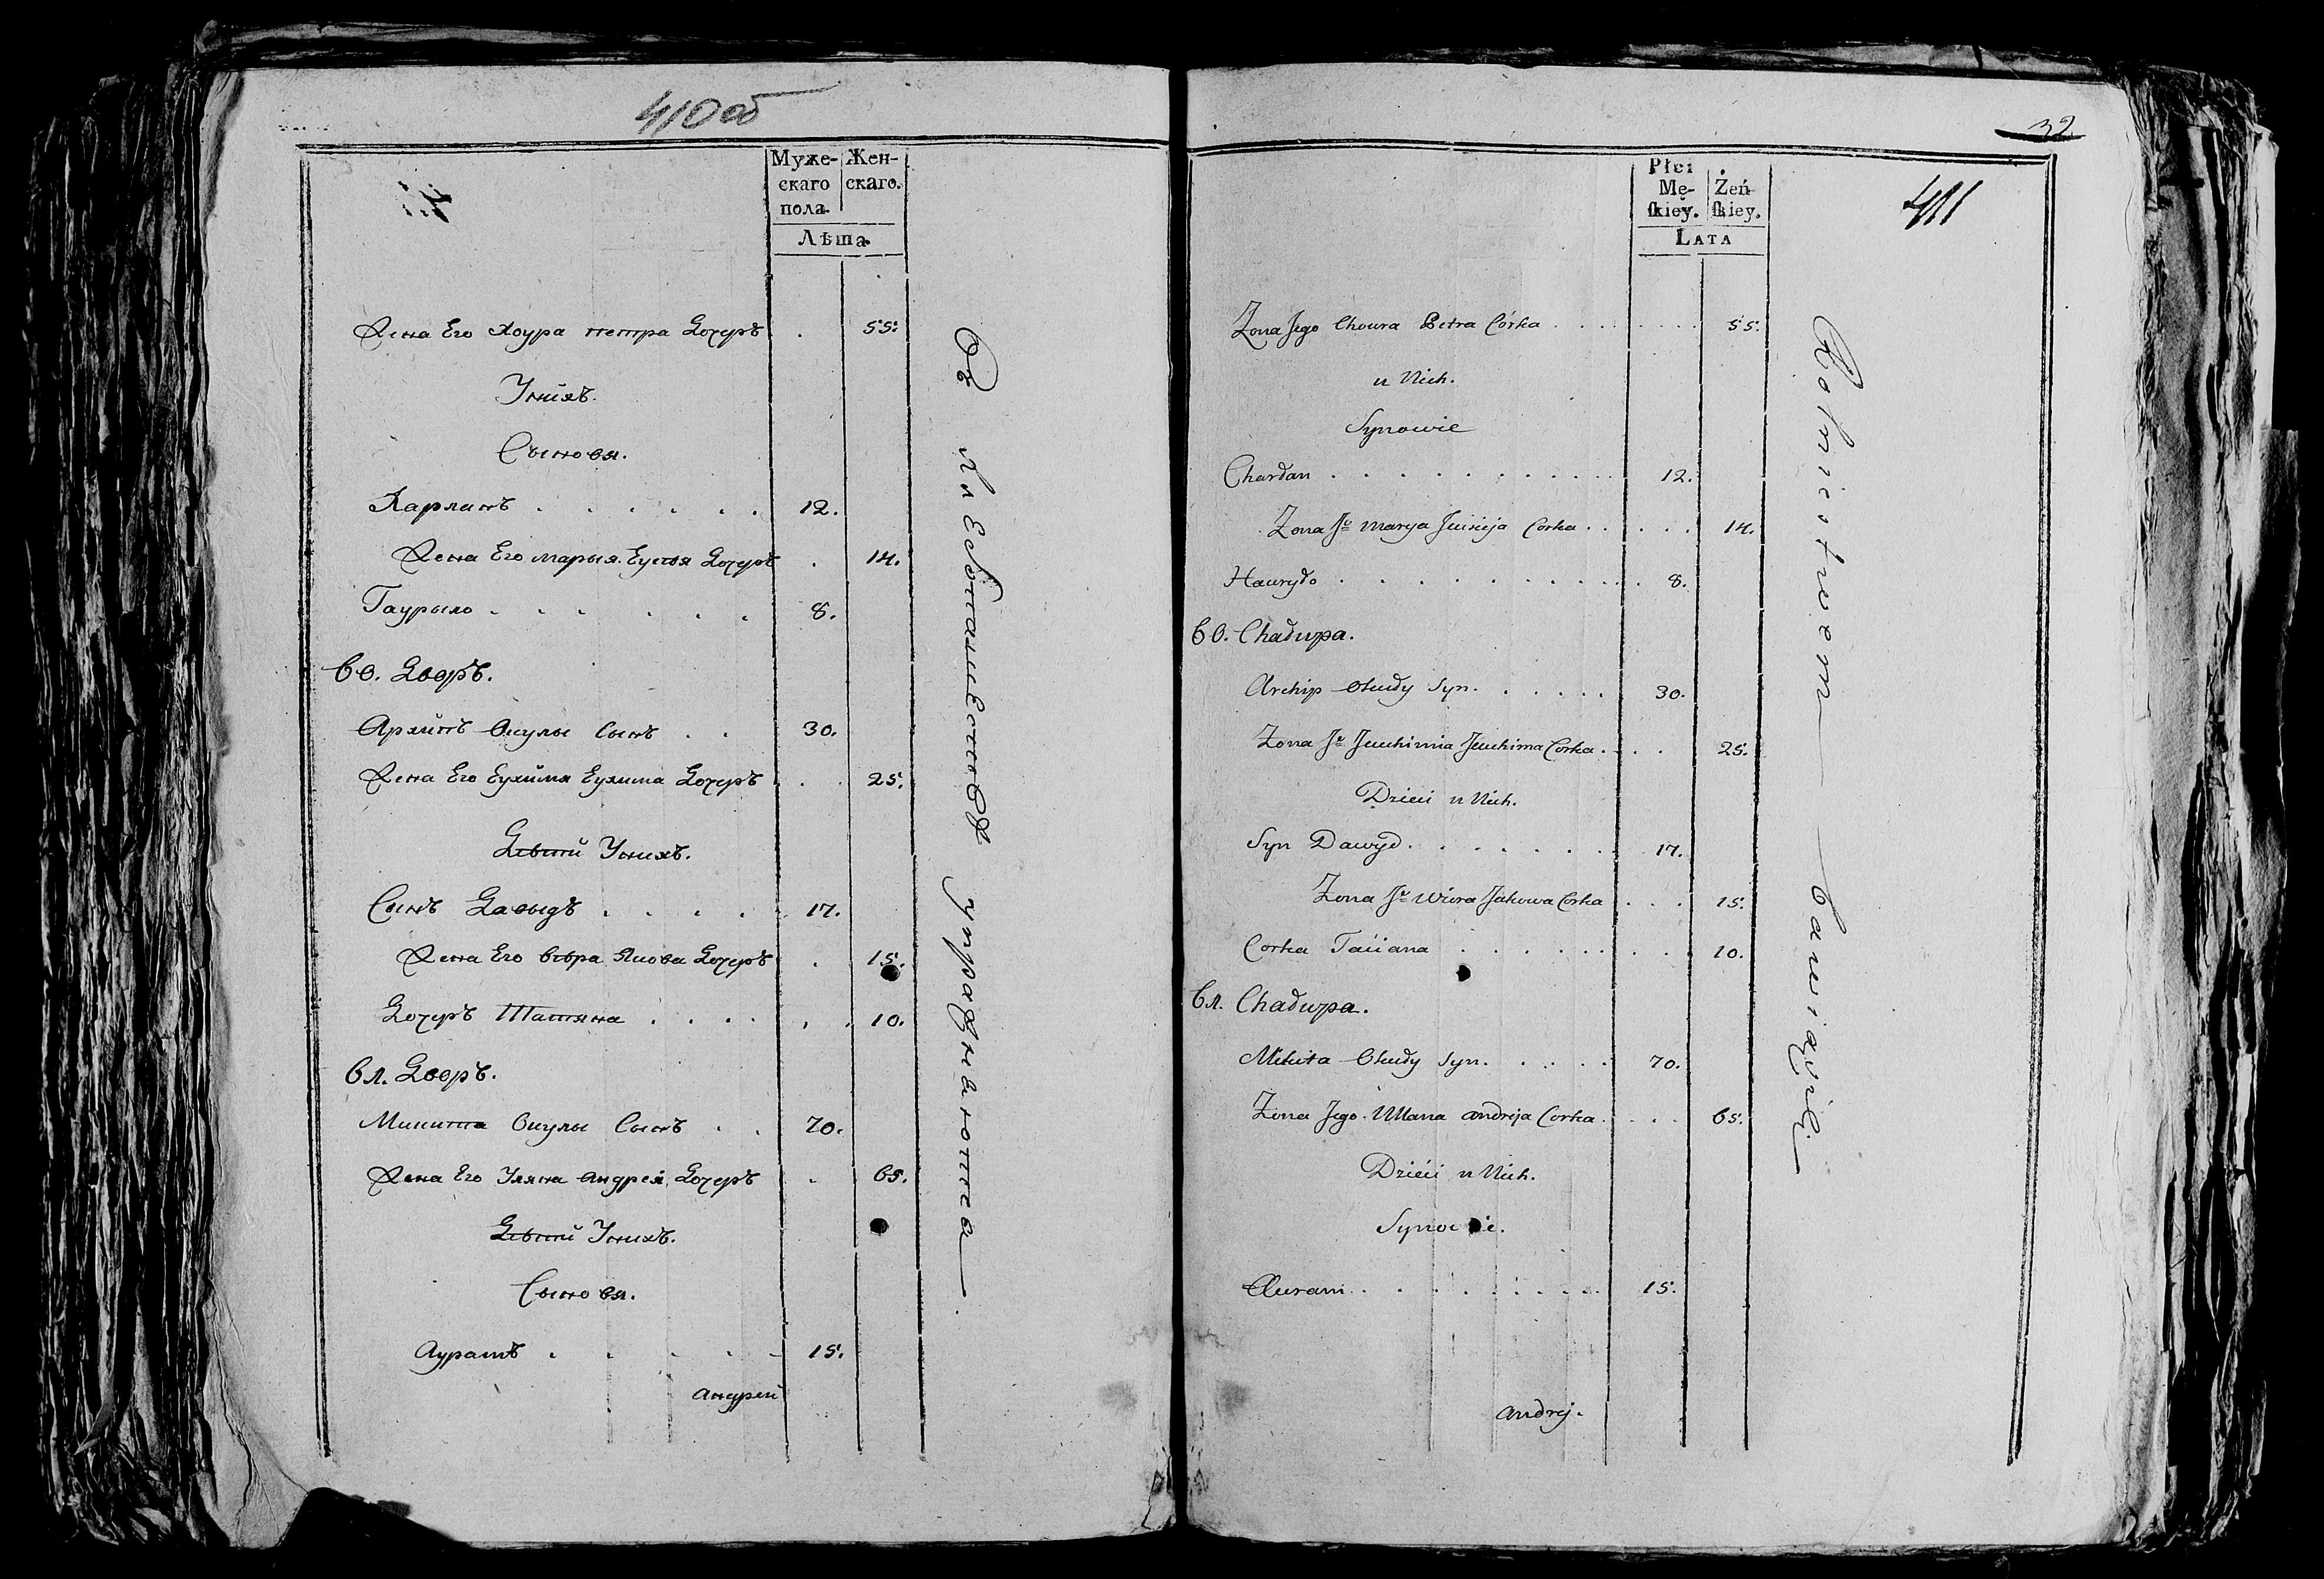 410 об
Муже-
скаго
пола.
Жен-
скаго.
Лѣта
Жена Его Хоура петра Дочеръ . 55.
Унихъ.
Сыновя.
Харланъ . . . . . . 12.
Жена Его марыя Еусея Дочеръ . 14.
Гаурыло . . . . . . 8.
60. Дворъ.
Архипъ Окулы Сынъ . . 30.
Жена Его Еухимя Еухима Дочеръ . . 25.
Дѣтй Унихъ.
Сынъ Давыдъ . . . . . 17.
Жена Его вѣра Якова Дочеръ . 15.
Дочеръ Татяна . . . . . . 10.
61. Дворъ.
Микита Окулы Сынъ . . 70.
Жена Его Уляна Андрея Дочеръ . 65.
Дѣтй Унихъ.
Сыновя.
Аурамъ . . . . . 15.
Андрей
Въ хлебопашествѣ упражняются
32
411
Płci
Mę-
skiey.
Żeń
skiey.
LATA
Zona Jego Choura Petra Córka . . . . . . . 55.
u Nich.
Synowie
Charłan . . . . . . . . . . 12.
Zona Jo Marya Jeusieja Corka . . . . . 14.
Hauryło . . . . . . . . . . . 8.
60. Chałupa.
Archip Okuły Syn. . . . . . 30.
Zona Jo Jeuchimia Jeuchima Corka . . . 25.
Dzieci u Nich.
Syn Dawyd . . . . . . . . 17.
Zona Jo Wiera Jakowa Corka . . . 15.
Corka Taciana . . . . . . . . 10.
61. Chałupa.
Mikita Okuły Syn. . . . . 70.
Zona Jego Ullana Andreja Corka . . . . 65.
Dzieci u Nich.
Synowie.
Auram . . . . . . . . . 15.
Andrej.
Rolnictwem bawią się